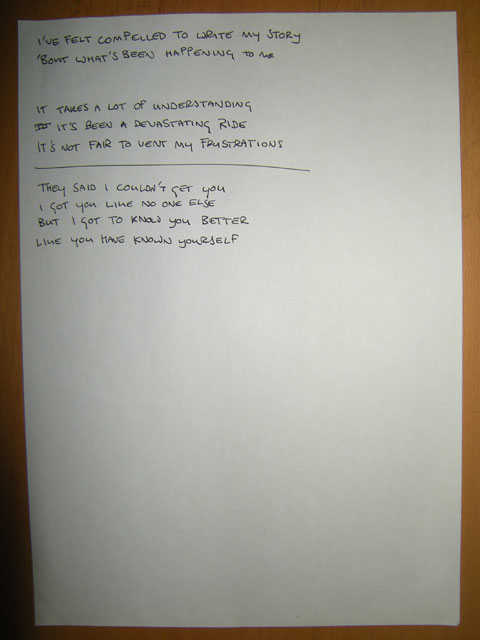 I'VE FELT COMPELLED TO WRITE MY STORY
'BOUT WHAT'S BEEN HAPPENING TO ME
IT TAKES A LOT OF UNDERSTANDING
IT'S BEEN A DEVASTATING RIDE
IT'S NOT FAIR TO VENT MY FRUSTRATIONS
THEY SAID I COULDN'T GET YOU
I GOT YOU LIKE NO ONE ELSE
BUT I GOT TO KNOW YOU BETTER
LIKE YOU HAVE KNOWN YOURSELF